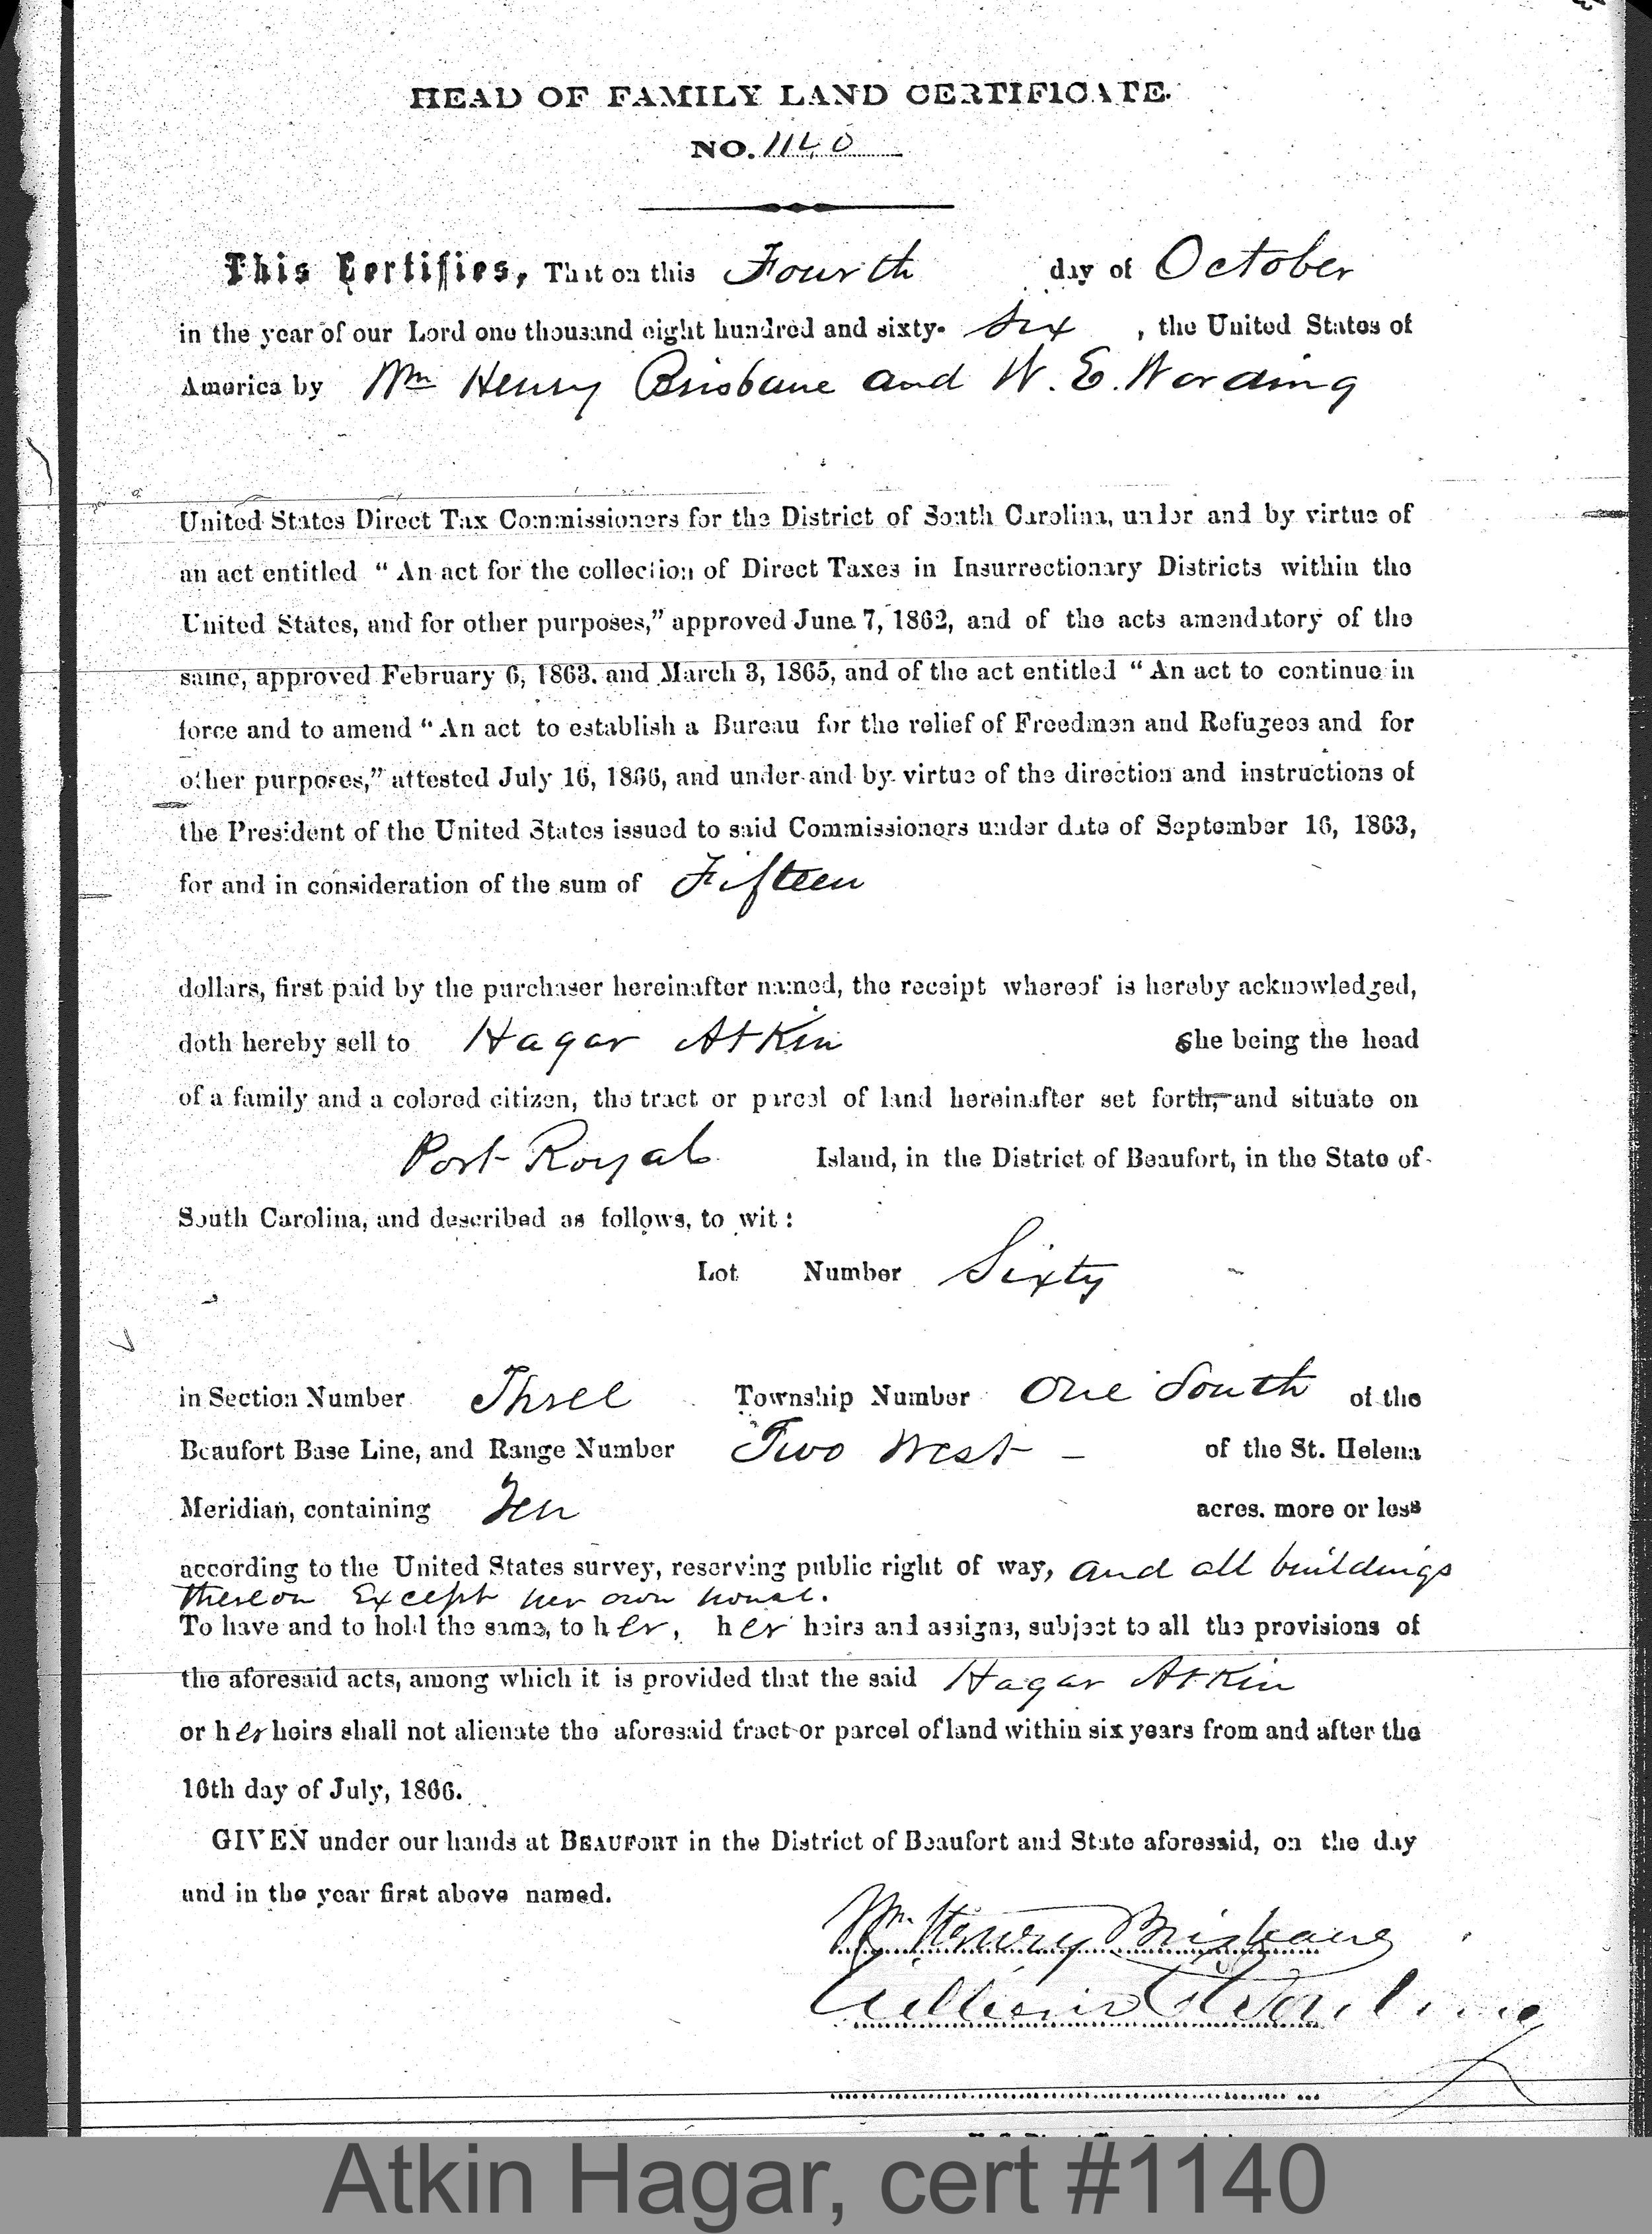 HEAD OF FAMILY LAND CERTIFICATE.
NO. 1140
This Certifies, That on this Fourth day of October
in the year of our Lord one thousand eight hundred and sixty- Six , the United States of
America by Wm Henry Brisbane and W. E. Wording
United States Direct Tax Commissioners for the District of South Carolina, under and by virtue of
an act entitled “ An act for the collection of Direct Taxes in Insurrectionary Districts within the
United States, and for other purposes,” approved June 7, 1862, and of the acts amendatory of the
same, approved February 6, 1863. and March 3, 1865, and of the act entitled “ An act to continue in
force and to amend “ An act to establish a Bureau for the relief of Freedmen and Refugees and for
other purposes,” attested July 16, 1866, and under and by virtue of the direction and instructions of
the President of the United States issued to said Commissioners under date of September 16, 1863,
for and in consideration of the sum of Fifteen
dollars, first paid by the purchaser hereinafter named, the receipt whereof is hereby acknowledged,
doth hereby sell to Hagar Atkin She being the head
of a family and a colored citizen, the tract or parcel of land hereinafter set forth, and situate on
Port Royal Island, in the District of Beaufort, in the State of
South Carolina, and described as follows, to wit :
Lot Number Sixty
in Section Number Three Township Number One South of the
Beaufort Base Line, and Range Number Two West – of the St. Helena
Meridian, containing Ten acres. more or less
according to the United States survey, reserving public right of way, and all buildings
thereon Except her own house.
To have and to hold the same, to her, her heirs and assigns, subject to all the provisions of
the aforesaid acts, among which it is provided that the said Hagar Atkin
or her heirs shall not alienate the aforesaid tract or parcel of land within six years from and after the
16th day of July, 1866.
GIVEN under our hands at BEAUFORT in the District of Beaufort and State aforesaid, on the day
and in the year first above named.
Wm. Henry Brisbane
William E. Wording
Atkin Hagar, cert #1140